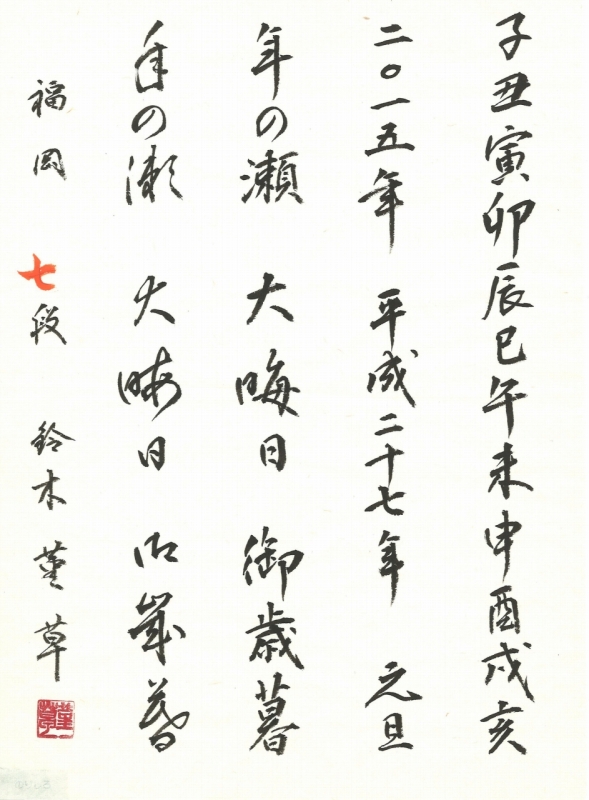 子丑寅卯辰巳午未申酉戌亥
二〇一五年 平成二十七年 元旦
年の瀬 大晦日 御歳暮
年の瀬 大晦日 御歳暮
福岡 七段 鈴木菫草